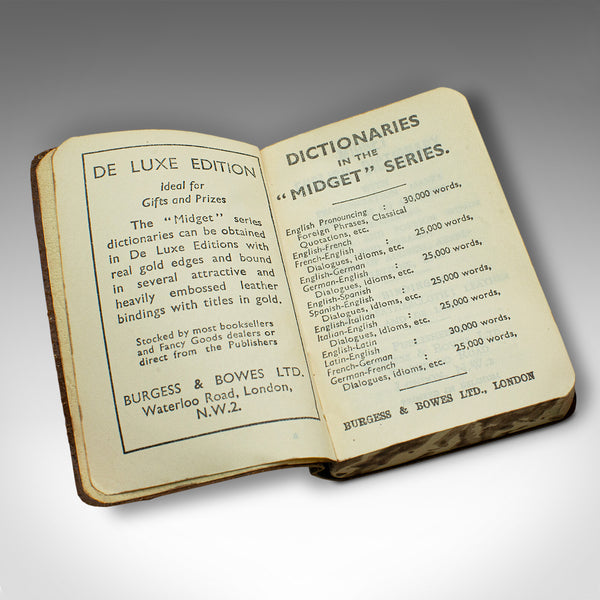 DE LUXE EDITION
Ideal for
Gifts and Prizes
The "Midget" series
dictionaries can be obtained
in De Luxe Editions with
real gold edges and bound
in several attractive and
heavily embossed leather
bindings with titles in gold.
Stocked by most booksellers
and Fancy Goods dealers or
direct from the Publishers
BURGESS & BOWES LTD.
Waterloo Road, London,
N.W.2.
DICTIONARIES
IN THE
"MIDGET" SERIES.
English Pronouncing : 30,000 words,
Foreign Phrases, Classical
Quotations, etc.
English-French : 25,000 words,
French-English
Dialogues, idioms, etc.
English-German : 25,000 words,
German-English
Dialogues, idioms, etc.
English-Spanish : 25,000 words,
Spanish-English
Dialogues, idioms, etc.
English-Italian : 25,000 words,
Italian-English
Dialogues, idioms, etc.
English-Latin : 30,000 words,
Latin-English
French-German : 25,000 words,
German-French,
Dialogues, idioms, etc.
BURGESS & BOWES LTD., LONDON